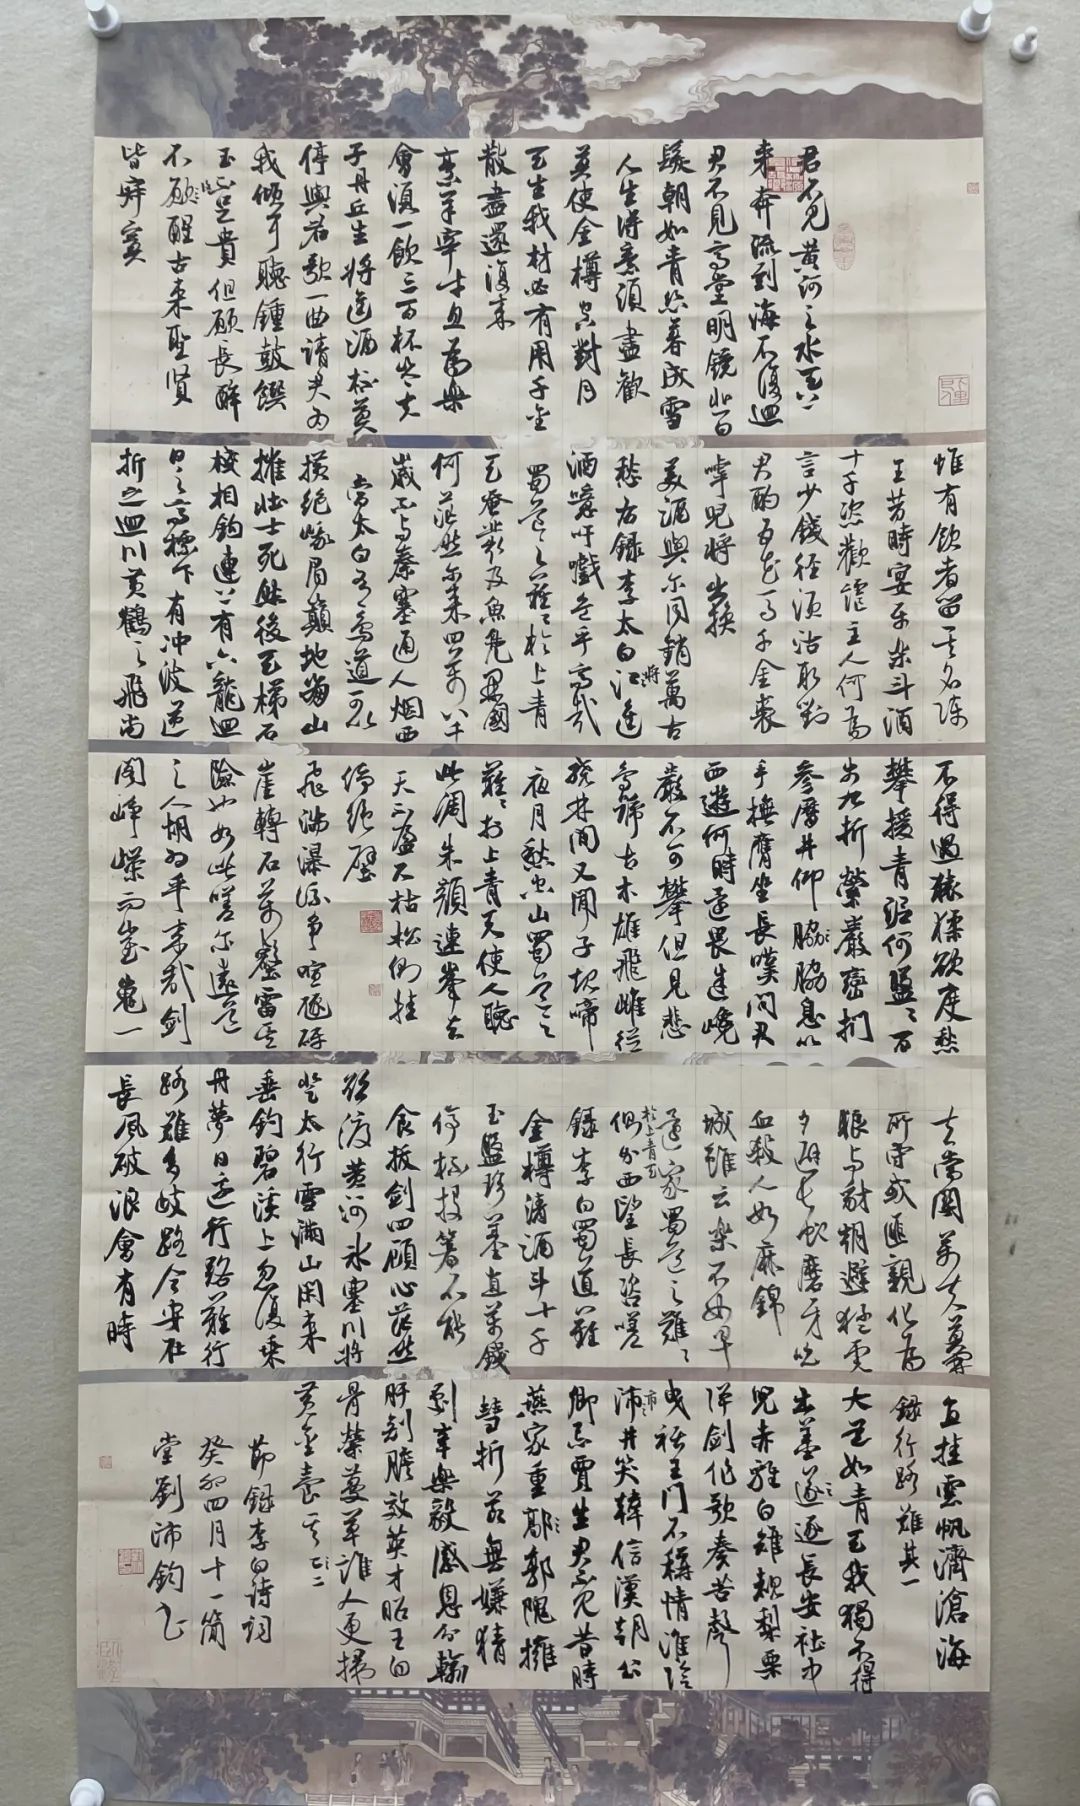 君不見黃河之水天上
來奔流到海不復迴
君不見高堂明鏡悲白
髮朝如青絲暮成雪
人生得意須盡歡
莫使金樽空對月
天生我材必有用千金
散盡還復來
烹羊宰牛且為樂
會須一飲三百杯岑夫
子丹丘生將進酒杯莫
停與君歌一曲請君為
我傾耳聽鍾鼓饌
玉不足貴但願長醉
不願醒古來聖賢
皆寂寞
惟有飲者留其名陳
王昔時宴平樂斗酒
十千恣歡謔主人何為
言少錢徑須沽取對
君酌五花馬千金裘
呼兒將出換
美酒與爾同銷萬古
愁右錄李太白江進
將
酒噫吁嚱危乎高哉
蜀道之難難於上青
天蠶叢及魚鳧開國
何茫然爾來四萬八千
歲不與秦塞通人烟西
當太白有鳥道可以
橫絕峨眉巔地崩山
摧壯士死然後天梯石
棧相鈎連上有六龍迴
日之高標下有沖波逆
折之迴川黃鶴之飛尚
不得過猿猱欲度愁
攀援青泥何盤盤百
步九折縈巖巒捫
參歷井仰脇脇息以
手撫膺坐長嘆問君
西遊何時還畏途巉
巖不可攀但見悲
鳥號古木雄飛雌從
繞林間又聞子規啼
夜月愁空山蜀道之
難難於上青天使人聽
此凋朱顏連峯去
天不盈尺枯松倒挂
倚絕壁
飛湍瀑流爭喧豗砯
崖轉石萬壑雷其
險也如此嗟爾遠道
之人胡為乎來哉劍
閣崢嶸而崔嵬一
夫當關萬夫莫開
所守或匪親化為
狼與豺朝避猛虎
夕避長蛇磨牙吮
血殺人如麻錦
城雖云樂不如早
還家蜀道之難難
於上青天
側身西望長咨嗟
錄李白蜀道難
金樽清酒斗十千
玉盤珍羞直萬錢
停杯投箸不能
食拔劍四顧心茫然
欲渡黃河冰塞川將
登太行雪滿山閑來
垂釣碧溪上忽復乘
舟夢日邊行路難行
路難多歧路今安在
長風破浪會有時
直挂雲帆濟滄海
錄行路難其一
大道如青天我獨不得
出羞逐長安社中
兒赤雞白雉賭梨栗
彈劍作歌奏苦聲
曳裾王門不稱情淮陰
市井笑韓信漢朝公
卿忌賈生君不見昔時
燕家重郭隗擁
篲折節無嫌猜
劇辛樂毅感恩分輸
肝剖膽效英才昭王白
骨縈蔓草誰人更掃
黃金臺其二
節錄李白詩詞
癸卯四月十一簡
堂劉沛鈞書